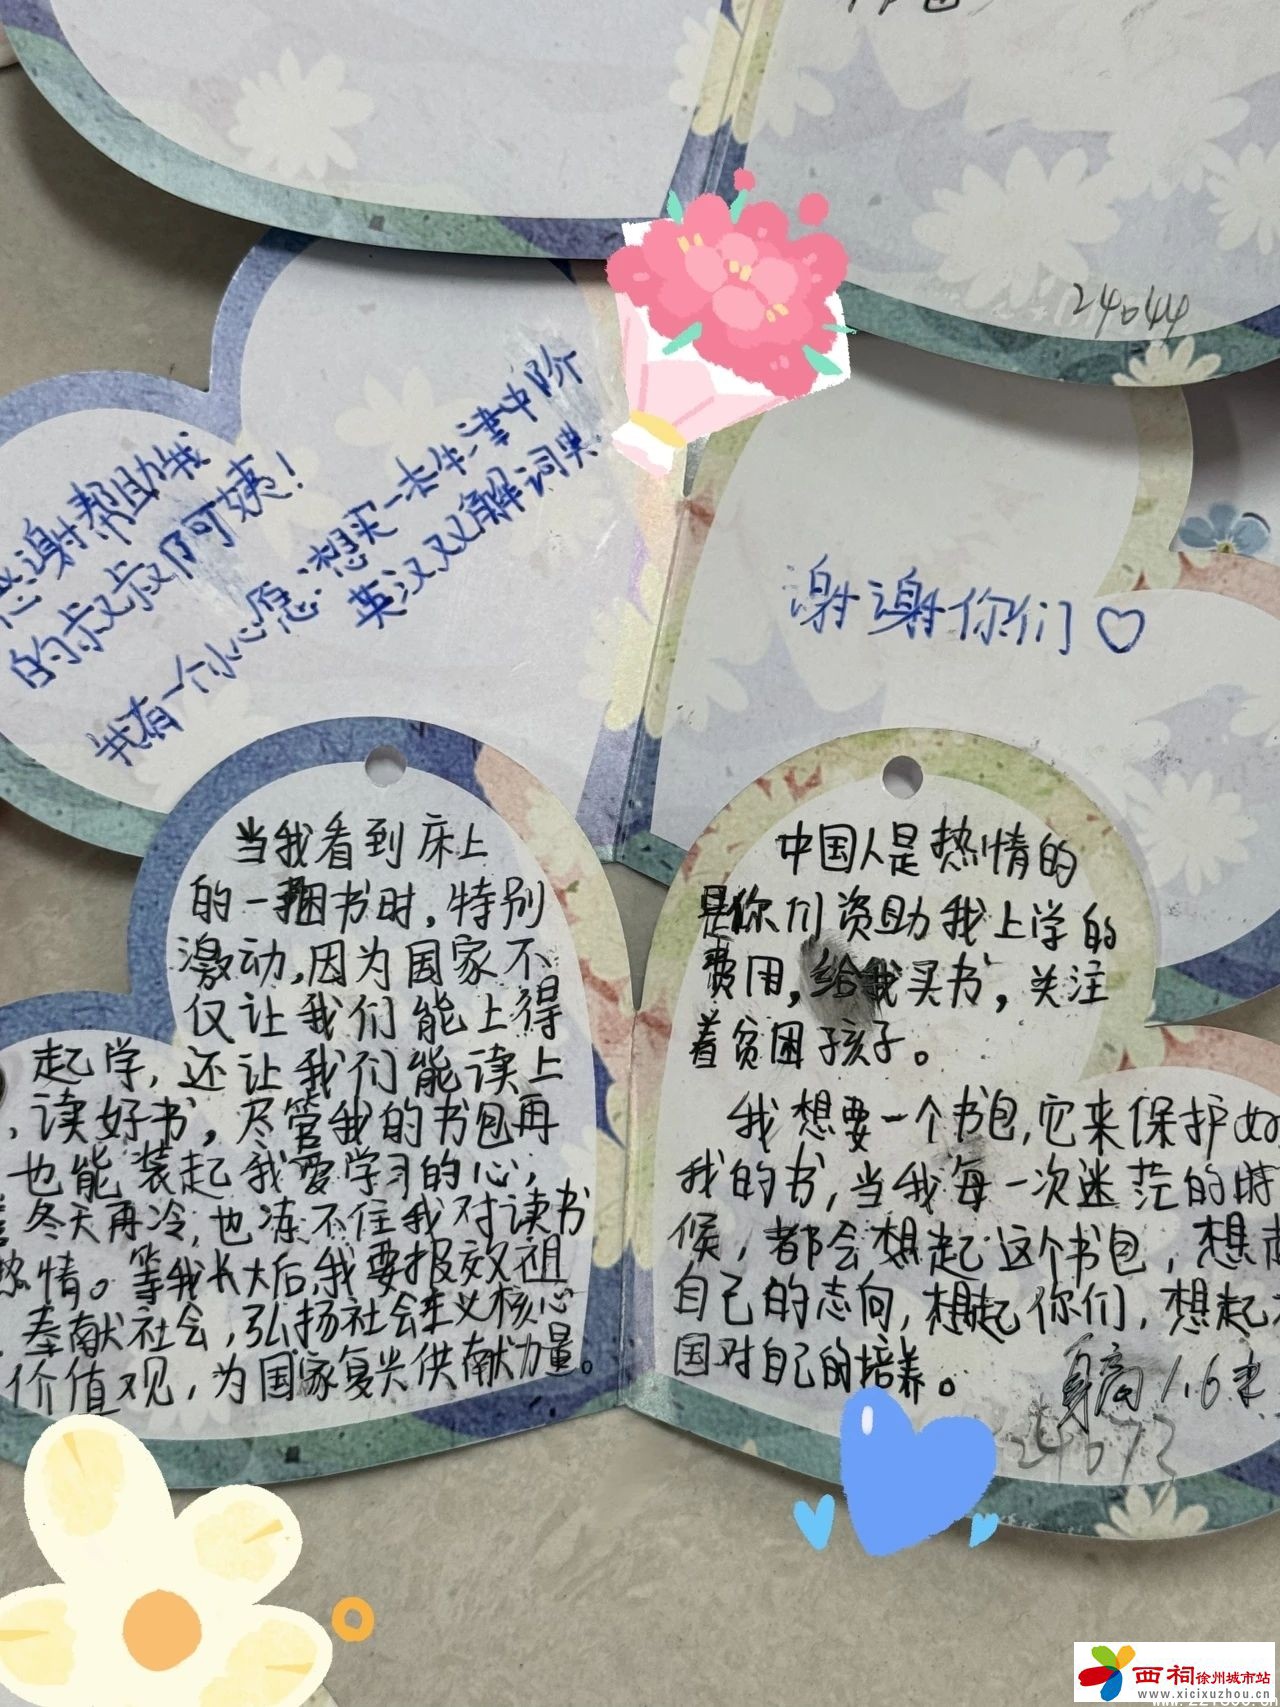 24044
感谢帮助我
的叔叔阿姨！
我有一个小心愿：想买一本牛津中阶
英汉双解词典
谢谢你们♡
当我看到床上
的一捆书时，特别
激动，因为国家不
仅让我们能上得
起学，还让我们能读上
，读好书，尽管我的书包再
也能装起我爱学习的心；
冬天再冷，也冻不住我对读书
热情。等我长大后，我要报效祖
奉献社会，弘扬社会主义核心
价值观，为国家复兴供献力量。
中国人是热情的
是你们资助我上学的
费用，给我买书，关注
着贫困孩子。
我想要一个书包，它来保护好
我的书，当我每一次迷茫的时
候，都会想起这个书包，想起
自己的志向，想起你们，想起
国对自己的培养。
身高1.6米
24073
西祠徐州城市站
www.xicixuzhou.cn